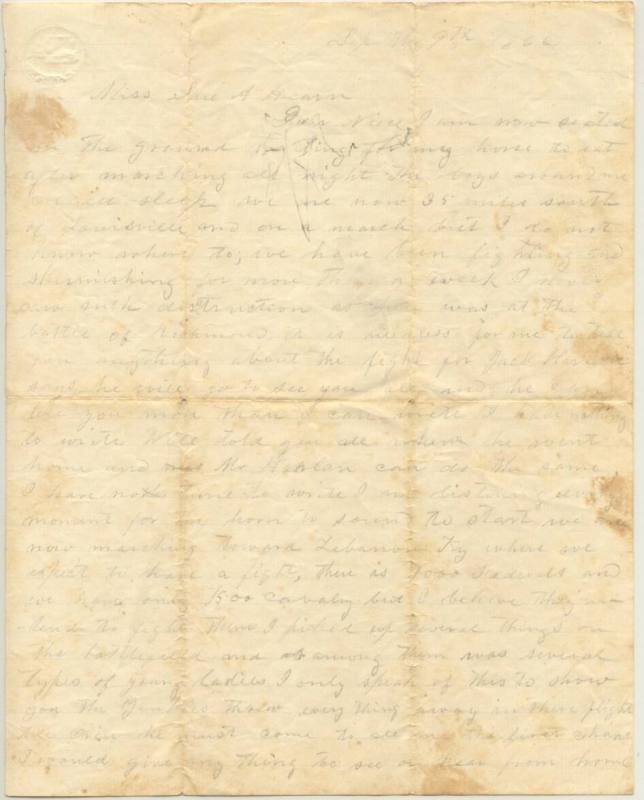 Sep the 9th 1862
Miss Sue A Hearn
Dear Niece I am now seated
on the ground trying for my horse to eat
after marching all night the boys around me
are all sleep we are now 35 miles south
of Louisville and on a march but I do not
know where to, we have been fighting and
skirmishing for more than a week I never
saw such distruction as was at the
battle of Richmond it is useless for me to tell
you anything about the fight for Jack
says he will go to see you all and he can
tell you more than I can write I have nothing
to write Will told you all when he went
home and now Mr Harlan can do the same
I have not time to write I am listening every
moment for the horn to sound to start we are
now marching toward Lebanon Ky where we
expect to have a fight, there is 1000 Federals and
we have only 1500 cavalry but I believe they in-
-tend to fight them I picked up several things on
the battlefield and as among them was several
types of young ladies I only speak of this to show
you the Yankees throw every thing away in there flight
he must come to see me the first chance
I would give any thing to see or hear from home